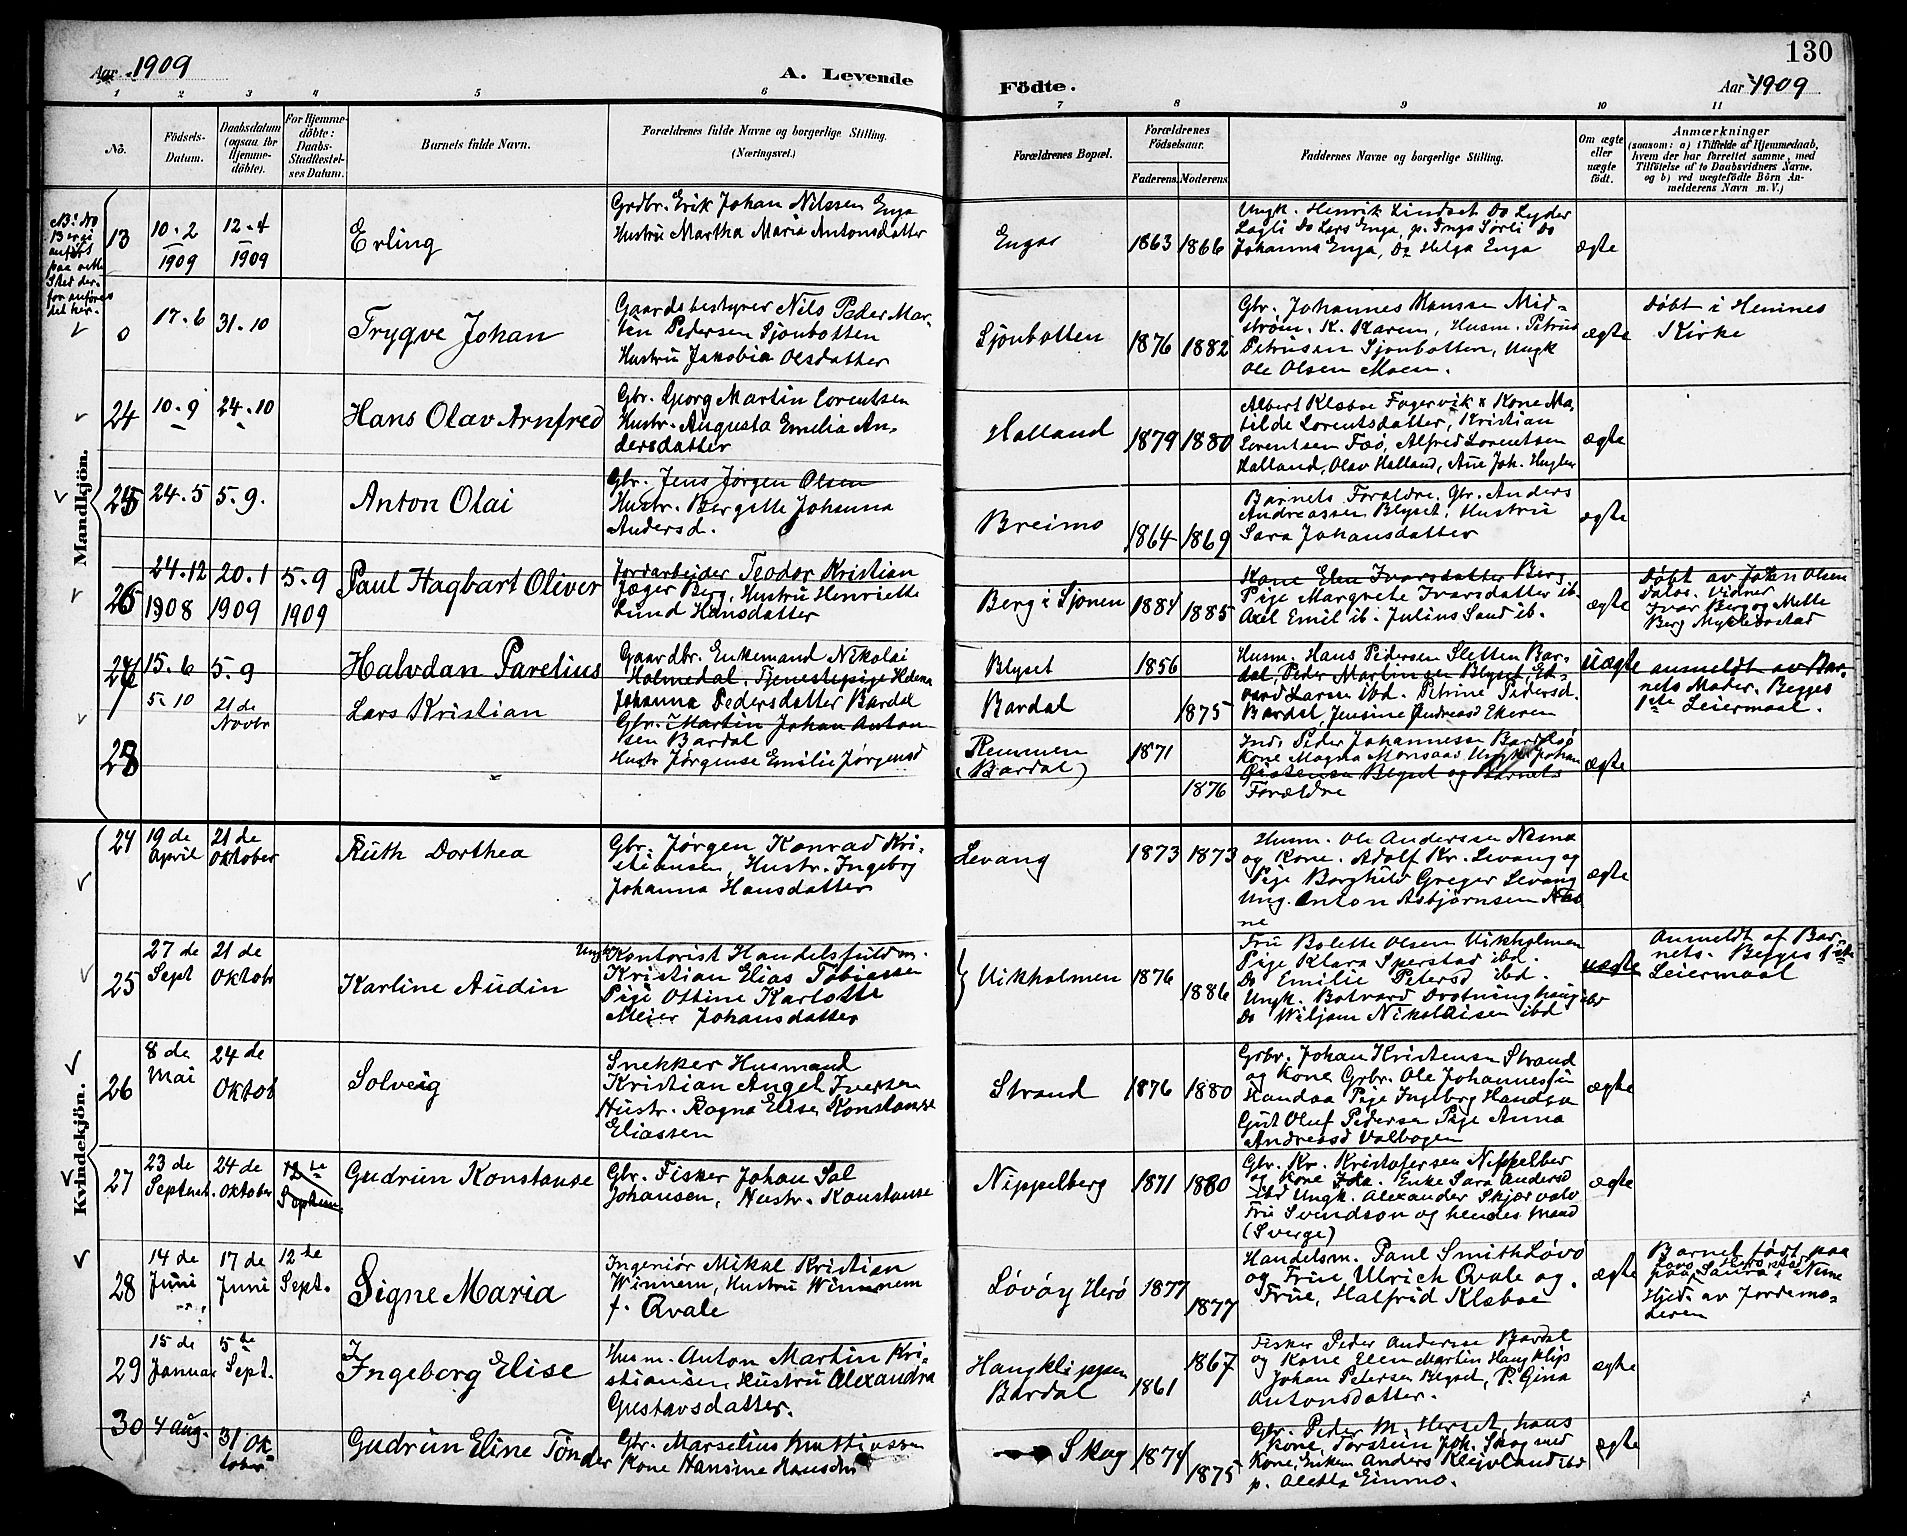 130
Aar 1909
A. Levende
Födte.
Aar 1909
1 2 3 4 5 6 7 8 9 10 11
No.
Födsels-Datum.
Daabsdatum (ogsaa for Hjemme-döbte).
For Hjemme-döbte: Daabs-Stadfestelses Datum.
Barnets fulde Navn.
Forældrenes fulde Navne og borgerlige Stilling. (Næringsvei.)
Forældrenes Bopæl.
Forældrenes Födselsaar.
Faderens. Moderens.
Faddernes Navne og borgerlige Stilling.
Om ægte eller uægte födt.
Anmærkninger
(saasom: a) i Tilfælde af Hjemmedaab, hvem der har forrettet samme, med Tilföielse af to Daabsvidners Navne. og b) ved uægtefödte Börn Anmelderens Navn m. V.)
Mandkjön.
13
10-2 1909
12-4 1909
Erling
Grdbr. Erik Johan Nilssen Enga
Hustru Martha Maria Antonsdatter
Engar
1863 1866
Ungk. Henrik Lindset Do Lyder
Lagli Do Lars Enga, p. Inga Sörli Do
Johanna Enga, Do Helga Enga
ægte
0
17-6
31-10
Trygve Johan
Gaardsbestyrer Nils Peder Mar-
ten Pedersen Sjonbotten
Hustru Jakobia Olsdatter
Sjonbotten
1876 1882
Gbr. Johannes Hanssen Mid-
ström. K. Karen, Husm. Petrus
Petrusen Sjonbotten, Ungk
Ole Olsen Moen.
ægte
Döbt i Hemnes
Kirke
24
10-9
24-10
Hans Olav Arnfred
Gbr. Georg Martin Lorentsen
Hustr. Augusta Emilia An-
dersdatter
Halland
1879 1880
Albert Klæboe Fagervik & Kone Ma-
tilde Lorentsdatter, Kristian
Lorentsen Fæö, Alfred Lorentsen
Halland, Olav Halland, Ane Joh.
ægte
25
24-5
5-9.
Anton Olai
Gbr. Jens Jørgen Olsen
Hustr. Bergitte Johanna
Andersd.
Breimo
1864 1869
Barnets Foraldre. Gbr. Anders
Andreassen Blyset, Hustru
Sara Johansdatter
ægte
26
24.12 1908
20.1 1909
5-9 1909
Paul Hagbart Oliver
Jordarbejder Teodor Kristian
Jæger Berg, Hustru Henriette
Lund Hansdatter
Berg i Sjonen
1884 1885
Kone Elen Ivarsdatter Berg
Pije Margrete Ivarsdatter ib.
Axel Emil ib. Julius Sand ib.
ægte
Döbt av Johan Olsen
Dalos. Vidner
Ivar Berg og Mette
Berg Myklebostad
27
15-6
5-9
Halvdan Parelius
Gaardbr. Enkemand Nikolai
Holmedal, Tjenestepige Helena
Johanna Pedersdatter Bardal
Blyset
Bardal
1856
1875
Husm. Hans Pedersen Sletten Bar-
dal, Peder Martinsen Blyset, Ed-
vard Larsen ibd. Petrine Pedersd.
Bardal, Jensine Andreasd Ekeren
uægte
anmeldt av Bar-
nets Moder. Begges
1ste Leiermaal.
28
5-10
21 de Novbr
Lars Kristian
Gbr. Martin Johan Anton-
sen Bardal
Hustr Jørgense Emilie Jørgensd
Remmen
(Bardal)
1871
1876
Inds. Peder Johannessen
Kone Magna Monsaas Ungk. Johan
Blyset og Barnets
Foraeldre
ægte
Kvindekjön.
24
19 de April
21 de Oktober
Ruth Dorthea
Gbr. Jørgen Konrad Kri-
stiansen, Hustr. Ingeborg
Johanna Hansdatter
Levang
1873 1873
Husm. Ole Anderssen Nesna
og Kone. Adolf Kr. Levang og
Pije Borghild Greger Levang
Ung. Anton Asbjørnsen
ægte
25
27 de Sept
21 de Oktobr
Karline Audin
Ungk Kontorist Handelsfuldm.
Kristian Elias Tobiassen
Pige Ottine Karlotte
Meier Johansdatter
Vikholmen
1876 1886
Fru Bolette Olsen Vikholmen
Pije Klara Sperstad ibd.
Do Emilie Petersd ibd.
Ungk. Botvard Drotninghaug ibd
Do Wiljam Nikolaisen ibd
uægte
Anmeldt af Bar-
nets. Begges 1ste
Leiermaal
26
8 de Mai
24 de Oktob
Solveig
Snekker Husmand
Kristian Angel Iversen
Hustr. Ragna Elise Konstanse
Eliassen
Strand
1876 1880
Grbr. Johan Kristensen Strand
og Kone, Grbr. Ole Johannessen
Handaa Pije Ingeborg Handaa
Gut Oluf Pedersen Pige Anna
Andreasd Valbogen
ægte
27
23 de Septembr.
24 de Oktober
12te Septem
Gudrun Konstanse
Gbr. Fisker Johan Sal
Johansen, Hustr. Konstanse
Nippelberg
1871 1880
Gbr. Kr. Kristofersen Nippelber
og Kone Ida. Enke Sara Andersd
ibd Ungk. Alexander Skjærvalv
Fru Svendson og hendes mand
(Sverge)
ægte
28
14 de Juni
17 de Juni
12 te Sept.
Signe Maria
Ingeniør Mikal Kristian
Winnem, Hustru Winnem
f. Qvale
Løvöy Herö
1877 1877
Handelsm. Paul Smith Løvö
og Frue, Ulrich Qvale og
Frue, Halfrid Klæboe
ægte
Barnet født paa
Hjed. av Jordemo-
deren
29
15 de Januar
5 te Sept.
Ingeborg Elise
Husm. Anton Martin Kri-
stiansen, Hustru Alexandra
Gustavsdatter.
Haugklippen
Bardal
1861 1867
Fisker Peder Anderssen Bardal
og Kone Elen Martin Haugklip
Johan Petersen Blyset, P. Gina
Antonsdatter.
ægte
30
4 Aug.
31 Oktober
Gudrun Eline Tönder
Gbr. Marselius Mattiassen
Kone Hansine Hansdtr
Skog
1874 1875
Gbr. Peder M. Herset, hans
Kone, Torstein Joh. Skog med
Kone, Enken Anders Klejvland ibd
p. Aletta Einmo.
ægte